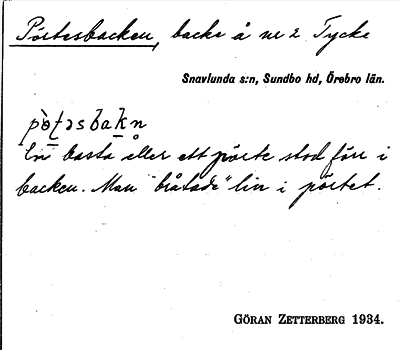 Pörtesbacken, backe å nr 2 Tycke
Snavlunda s:n, Sundbo hd, Örebro län.
En basta eller ett pörte stod förr i
backen. Man "bråtade" lin i pörtet.
GÖRAN ZETTERBERG 1934.